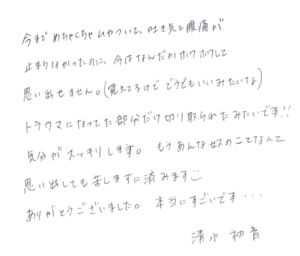 今まで めちゃくちゃムカついて、吐き気と腹痛が
止まらなかったのに、今はなんだかホワホワして
思い出せません。(覚えてるけど どうでもいいみたいな)
トラウマになってた部分だけ切り取られたみたいです!!
気分がスッキリします。 もうあんな奴のことなんて
思い出しても苦しまずに済みます
ありがとうございました。 本当にすごいです・・・
清水